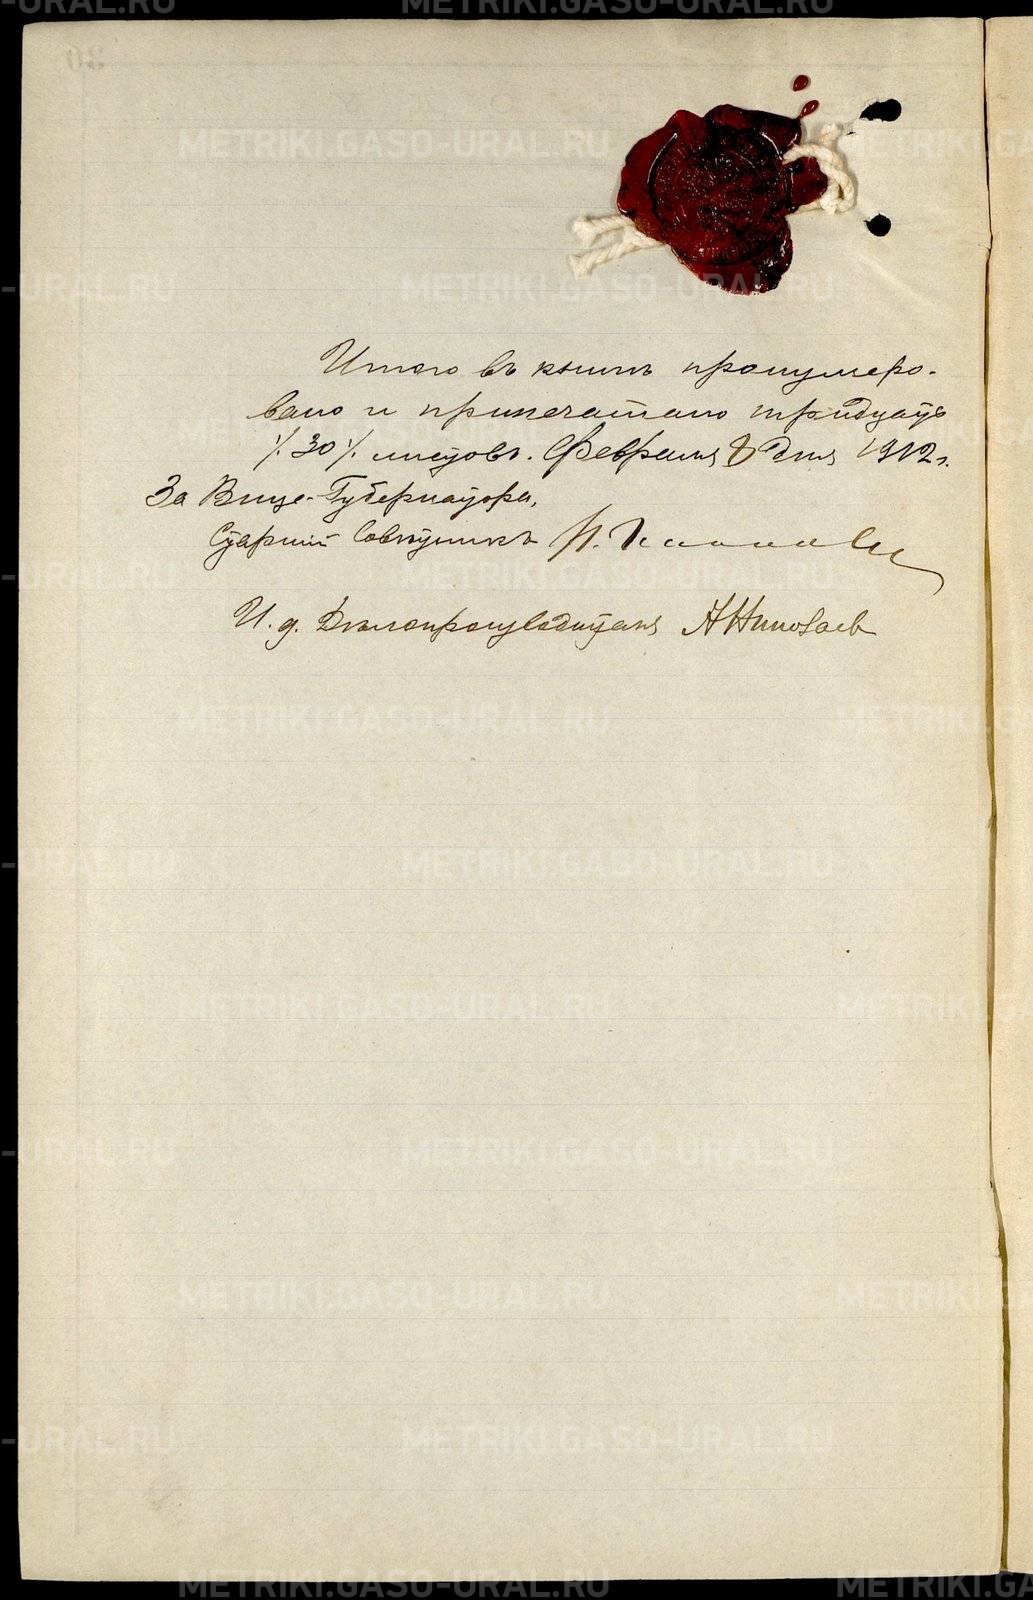 Итого въ книгѣ пронумеро-
вано и припечатано тридцать
/. 30 ./. листовъ. Февраля 8 дня 1912 г.
За Вице-Губернатора,
Старшій Совѣтникъ Н.
И. д. Дѣлопроизводителя А Николаев
METRIKI.GASO-URAL.RU